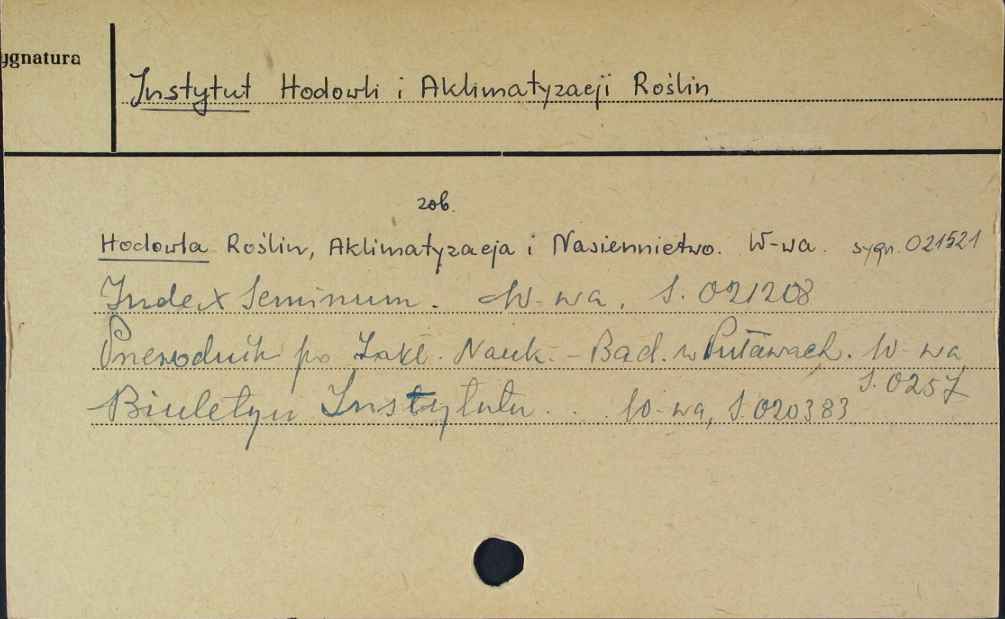 ygnatura
Instytut Hodowli i Aklimatyzacji Roślin
zob.
Hodowla Roślin, Aklimatyzacja i Nasiennictwo. W-wa. sygn. 021521
Index Seminum. W-wa. S. 021208
Przewodnik po Zakł. Nauk. - Bad. w Puławach. W-wa
S. 0257
Biuletyn Instytutu... W-wa, S. 020383